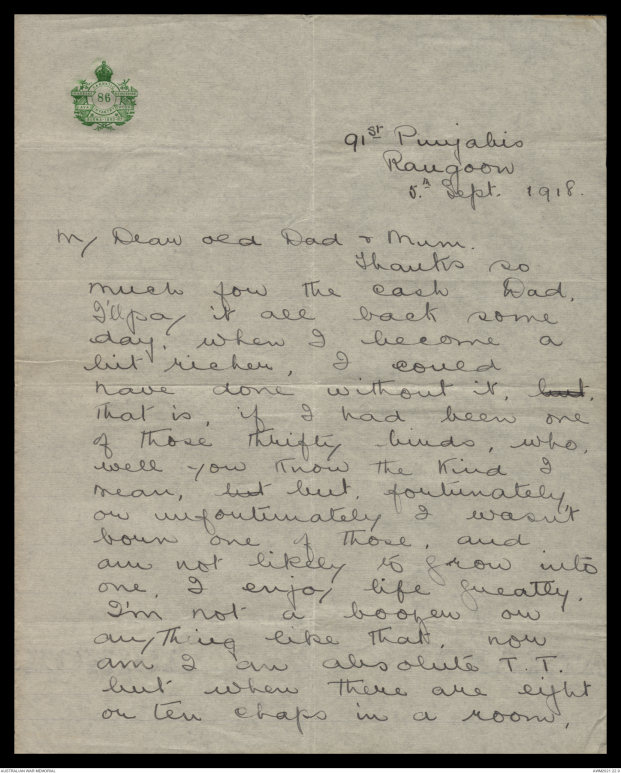 86
91st Punjabis
Rangoon
5.th Sept. 1918.
My Dear old Dad & Mum.
Thanks so
much for the cash Dad,
I'll pay it all back some
day, when I become a
bit richer, I could
have done without it, but,
that is, if I had been one
of those thrifty birds, who,
well you know the kind I
mean, but but, fortunately,
or unfortunately I wasn't
born one of those, and
am not likely to grow into
one, I enjoy life greatly.
I'm not a boozer or
anything like that, nor
am I an absolute T.T.
but when there are eight
or ten chaps in a room,
AUSTRALIAN WAR MEMORIAL